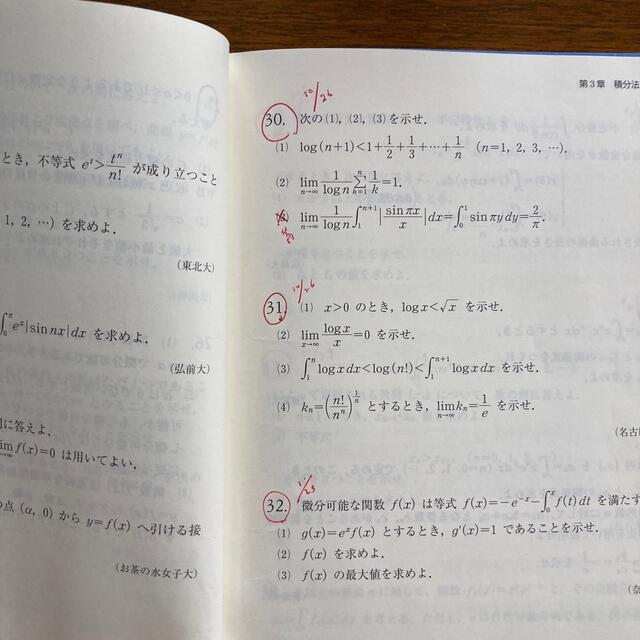 とき，不等式 e^t > t^n/n! が成り立つこと
1, 2, …) を求めよ．
(東北大)
∫_0^π e^x|sin nx|dx を求めよ．
(弘前大)
に答えよ．
lim f(x)=0 は用いてよい．
の点 (α, 0) から y=f(x) へ引ける接
(お茶の水女子大)
第3章 積分法
10/26
30. 次の (1), (2), (3) を示せ．
(1) log(n+1)<1+1/2+1/3+…+1/n (n=1, 2, 3, …).
(2) lim_{n→∞} 1/log n Σ_{k=1}^{n} 1/k=1.
(3) lim_{n→∞} 1/log n ∫_1^{n+1} |sin πx/x| dx=∫_0^1 sin πy dy=2/π.
10/26
31. (1) x>0 のとき，log x<√x を示せ．
(2) lim_{x→∞} log x/x=0 を示せ．
(3) ∫_1^n log x dx<log(n!)<∫_1^{n+1} log x dx を示せ．
(4) k_n=(n!/n^n)^{1/n} とするとき，lim_{n→∞} k_n=1/e を示せ．
(名古
32. 微分可能な関数 f(x) は等式 f(x)=-e^{-x}-∫_0^x f(t)dt を満たす
(1) g(x)=e^x f(x) とするとき，g′(x)=1 であることを示せ．
(2) f(x) を求めよ．
(3) f(x) の最大値を求めよ．
(奈